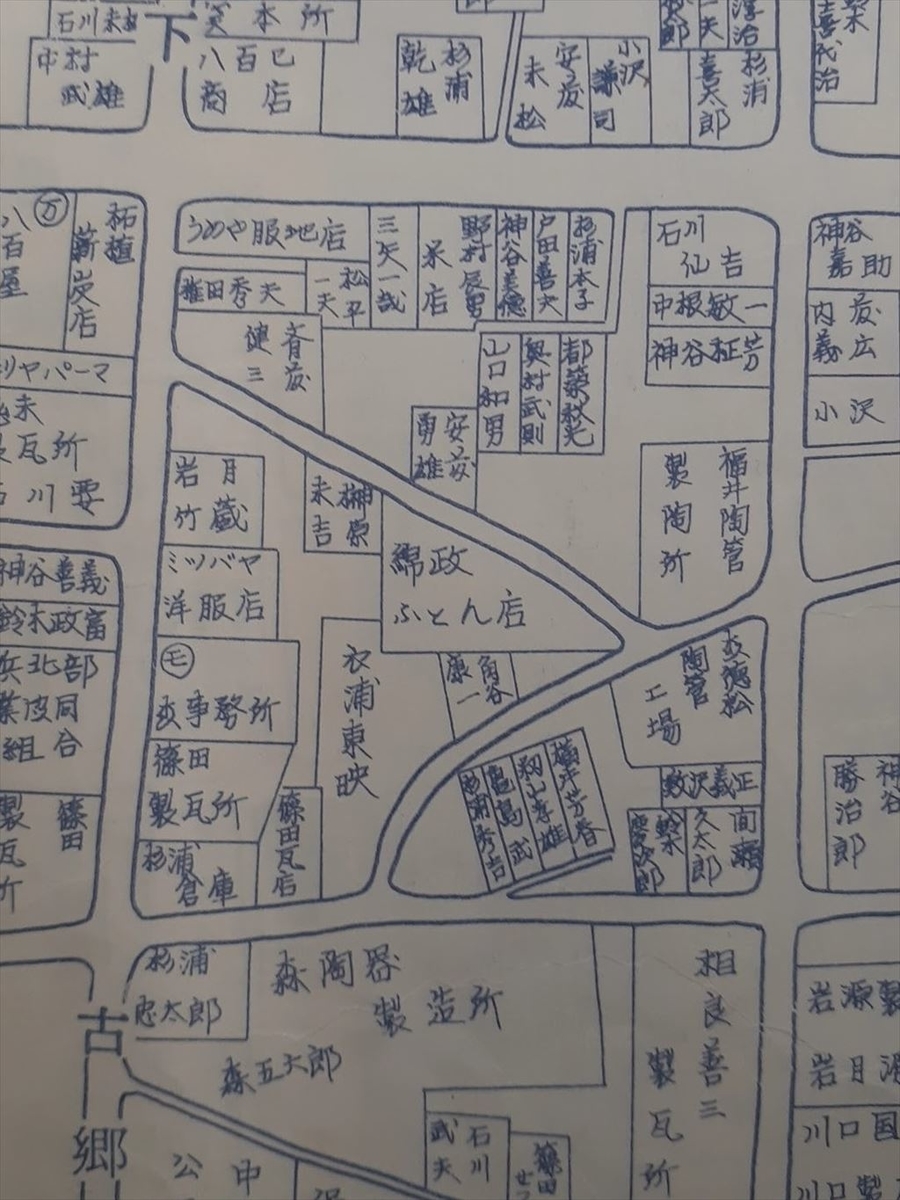 石川
下
笑本所
中村
武雄
八百巳
商店
杉浦
乾雄
安藤
末松
小沢
謙司
杉浦
喜太郎
淳治
一夫
喜代治
八百屋
万
柘植
薪炭店
パーマ
うめや服地店
権田秀夫
松平
一夫
三矢一哉
呆店
野村辰男
神谷美徳
戸田喜六
杉浦本子
石川
仙吉
中根敏一
神谷征芳
神谷
嘉助
内藤
義広
小沢
斉藤
健三
山口和男
奥村武則
都築
安藤
勇雄
瓦所
石川要
岩月
竹蔵
榊原
末吉
綿政
ふとん店
福井陶管
製陶所
ミツバヤ
洋服店
神谷善義
鈴木政富
北部
組合
モ
事務所
衣浦東映
角谷
康一
陶管
工場
篠田
製瓦所
篠田瓦店
杉浦
倉庫
篠田
製瓦所
横井芳春
籾山孝雄
亀島武
杉浦秀吉
数沢義正
鈴木
慶次郎
久太郎
神谷
勝治郎
杉浦
忠太郎
森陶器
製造所
森五太郎
相良善三
製瓦所
岩源製
岩月
川口国
川口製
古郷
石川
武夫
篠田
公中